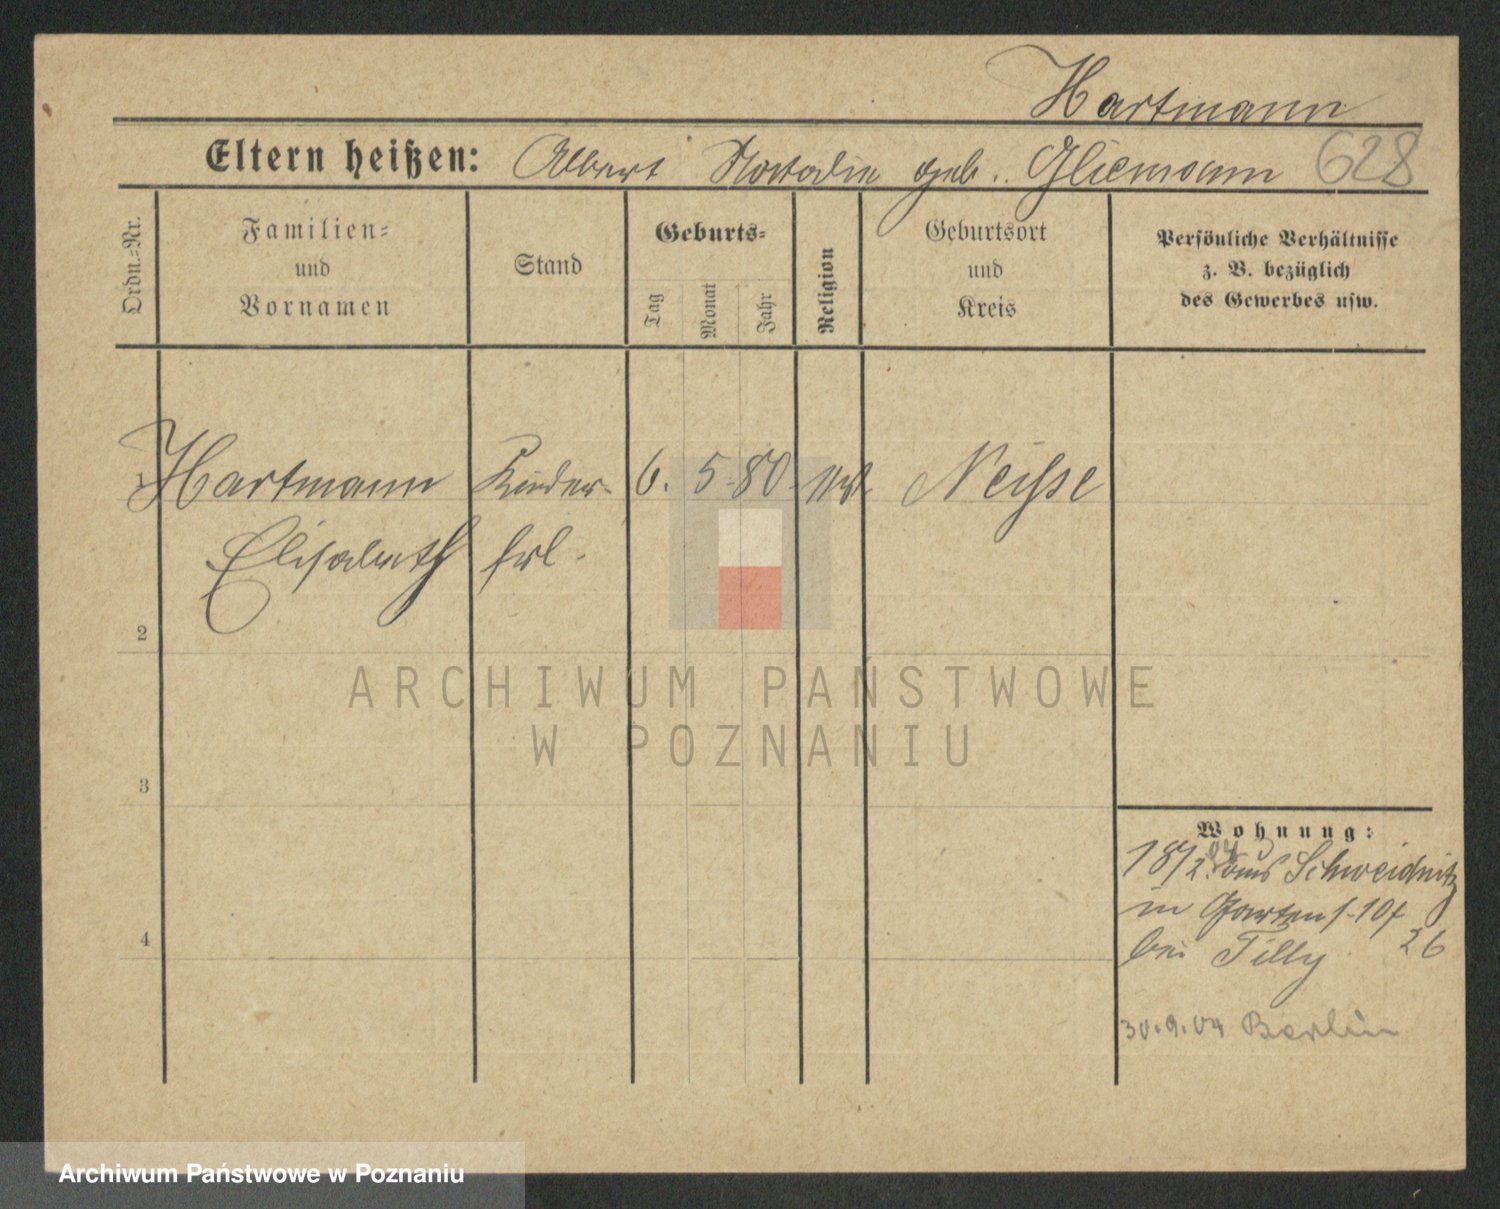 Hartmann
Eltern heißen: Albert Natalie geb. Gliemann 628
Ordn.-Nr.
Familien-
und
Vornamen
Stand
Geburts-
Tag
Monat
Jahr
Religion
Geburtsort
und
Kreis
Persönliche Verhältnisse
z. B. bezüglich
des Gewerbes usw.
1 Hartmann Kinder- 6. 5. 80. Neisse
Elisabeth frl.
2
3
4
Wohnung:
18/2. 04 aus Schweidnitz
in Gartenf. 10f
bei Tilly 26
30.9.04 Berlin
ARCHIWUM PAŃSTWOWE
W POZNANIU
Archiwum Państwowe w Poznaniu